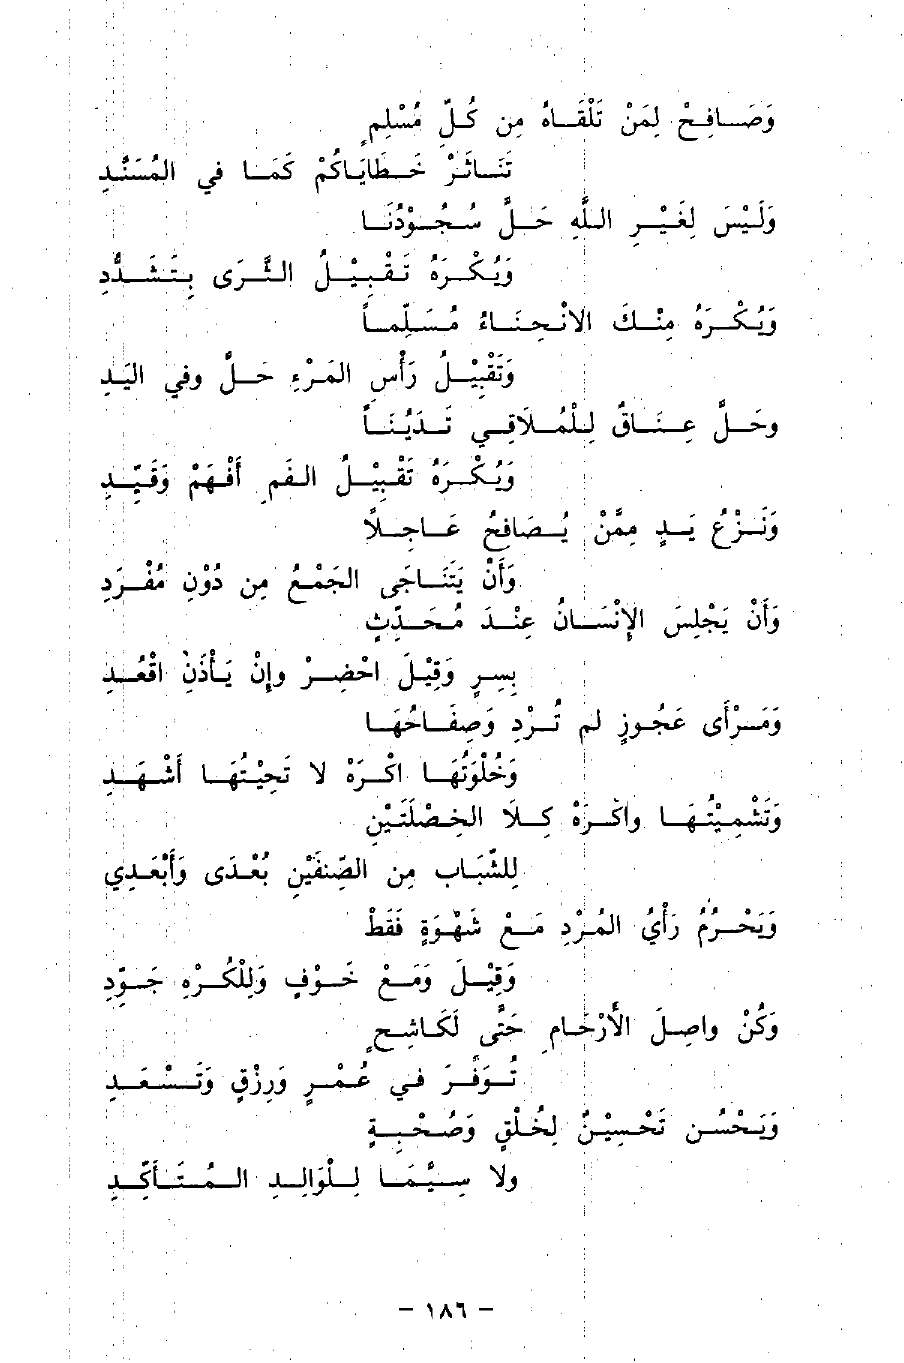 وَصَافِحْ لِمَنْ تَلْقَاهُ مِن كُلِّ مُسْلِمٍ
تَنَاثَرْ خَطَايَاكُمْ كَمَا في المُسْنَدِ
وَلَيْسَ لِغَيْرِ اللَّهِ حَلَّ سُجُوْدُنَا
وَيُكْرَهُ تَقْبِيْلُ الثَّرَى بِتَشَدُّدِ
وَيُكْرَهُ مِنْكَ الانْحِنَاءُ مُسَلِّماً
وَتَقْبِيْلُ رَأْسِ المَرْءِ حَلَّ وفي اليَدِ
وحَلَّ عِنَاقٌ لِلْمُلَاقِي تَدَيُّناً
وَيُكْرَهُ تَقْبِيْلُ الفَمِ أَفْهَمْ وَقَيِّدِ
وَنَزْعُ يَدٍ مِمَّنْ يُصَافِحُ عَاجِلاً
وَأَنْ يَتَنَاجَى الجَمْعُ مِن دُوْنِ مُفْرَدِ
وَأَنْ يَجْلِسَ الإِنْسَانُ عِنْدَ مُحَدِّثٍ
بِسِرٍ وَقِيْلَ احْضِرْ وإِنْ يَأْذَنِ اقْعُدِ
وَمَرْأَى عَجُوزٍ لم تُرْدِ وَصِفَاحُهَا
وَخُلْوَتُهَا اكْرَهْ لا تَحِيْتُهَا أَشْهَدِ
وَتَشْمِيْتُهَا واكْرَهْ كِلَا الخِصْلَتَيْنِ
لِلشَّبَابِ مِن الصِّنفَيْنِ بُعْدَى وَأَبْعَدِي
وَيَحْرُمُ رَأْيُ المُرْدِ مَعْ شَهْوَةٍ فَقَطْ
وَقِيْلَ وَمَعْ خَوْفٍ وَلِلْكُرْهِ جَوِّدِ
وَكُنْ واصِلَ الأَرْحَامِ حَتَّى لَكَاشِحٍ
تُوَفَّرَ في عُمْرٍ وَرِزْقٍ وَتَسْعَدِ
وَيَحْسُن تَحْسِيْنٌ لِخُلْقٍ وَصُحْبِةٍ
ولا سِيَّمَا لِلْوَالِدِ المُتَأَكِّدِ
- ١٨٦ -